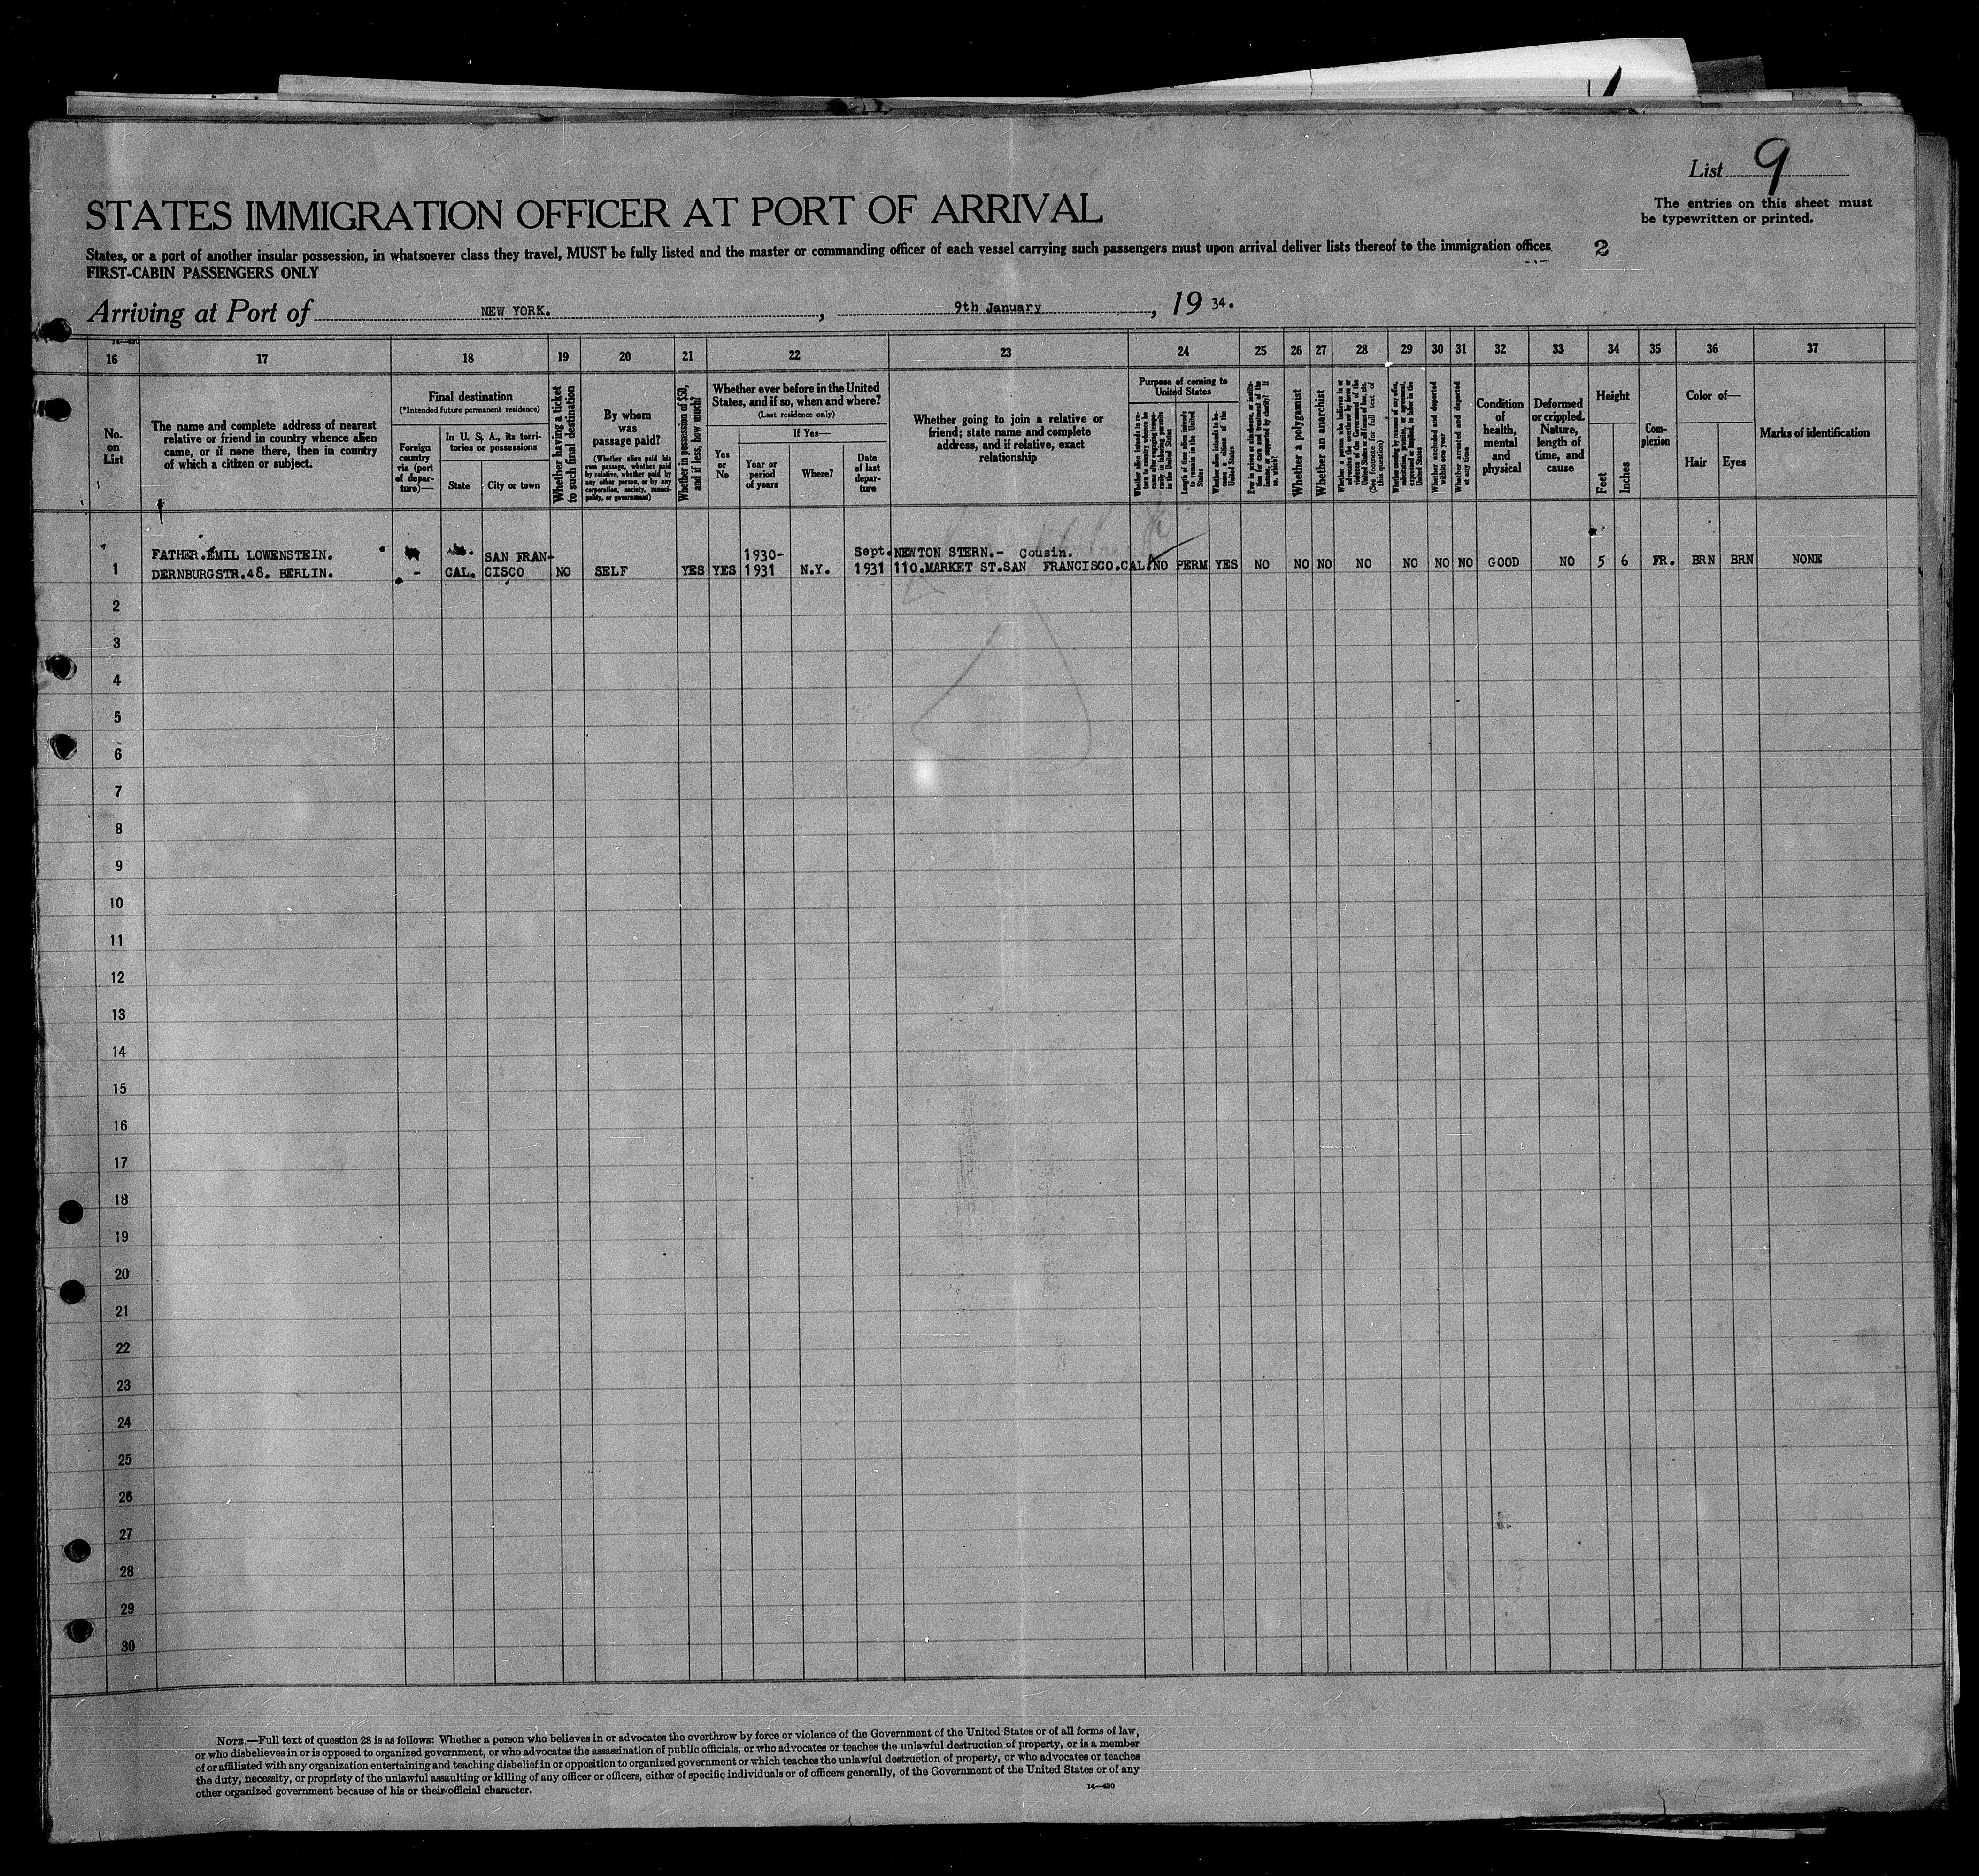 List 9
The entries on this sheet must
be typewritten or printed.
STATES IMMIGRATION OFFICER AT PORT OF ARRIVAL
States, or a port of another insular possession, in whatsoever class they travel, MUST be fully listed and the master or commanding officer of each vessel carrying such passengers must upon arrival deliver lists thereof to the immigration officer
2
FIRST-CABIN PASSENGERS ONLY
Arriving at Port of NEW YORK. , 9th January , 19 34.
16 17 18 19 20 21 22 23 24 25 26 27 28 29 30 31 32 33 34 35 36 37
No.
on
List
The name and complete address of nearest
relative or friend in country whence alien
came, or if none there, then in country
of which a citizen or subject.
Final destination
(*Intended future permanent residence)
Foreign
country
via (port
of depar-
ture)—
In U. S. A., its terri-
tories or possessions
State
City or town
Whether having a ticket
to such final destination
By whom
was
passage paid?
(Whether alien paid his
own passage, whether paid
by relative, whether paid by
any other person, or by any
corporation, society, munici-
pality, or government)
Whether in possession of $50,
and if less, how much?
Whether ever before in the United
States, and if so, when and where?
(Last residence only)
Yes
or
No
If Yes—
Year or
period
of years
Where?
Date
of last
depar-
ture
Whether going to join a relative or
friend; state name and complete
address, and if relative, exact
relationship
Purpose of coming to
United States
Length of time alien intends
to remain in the United
States
Whether alien intends to be-
come a citizen of the
United States
Whether a polygamist
Whether an anarchist
(See footnote for full text of
this question)
Whether excluded and deported
within one year
Whether arrested and deported
at any time
Condition
of
health,
mental
and
physical
Deformed
or crippled.
Nature,
length of
time, and
cause
Height
Feet
Inches
Com-
plexion
Color of—
Hair
Eyes
Marks of identification
FATHER.EMIL LOWENSTEIN. SAN FRAN- 1930- Sept. NEWTON STERN.- Cousin.
1 DERNBURGSTR.48. BERLIN. - CAL. CISCO NO SELF YES YES 1931 N.Y. 1931 110.MARKET ST.SAN FRANCISCO.CAL. NO PERM YES NO NO NO NO NO NO NO GOOD NO 5 6 FR. BRN BRN NONE
2
3
4
5
6
7
8
9
10
11
12
13
14
15
16
17
18
19
20
21
22
23
24
25
26
27
28
29
30
NOTE.—Full text of question 28 is as follows: Whether a person who believes in or advocates the overthrow by force or violence of the Government of the United States or of all forms of law,
or who disbelieves in or is opposed to organized government, or who advocates the assassination of public officials, or who advocates or teaches the unlawful destruction of property, or is a member
of or affiliated with any organization entertaining and teaching disbelief in or opposition to organized government or which teaches the unlawful destruction of property, or who advocates or teaches
the duty, necessity, or propriety of the unlawful assaulting or killing of any officer or officers, either of specific individuals or of officers generally, of the Government of the United States or of any
other organized government because of his or their official character.
14—430